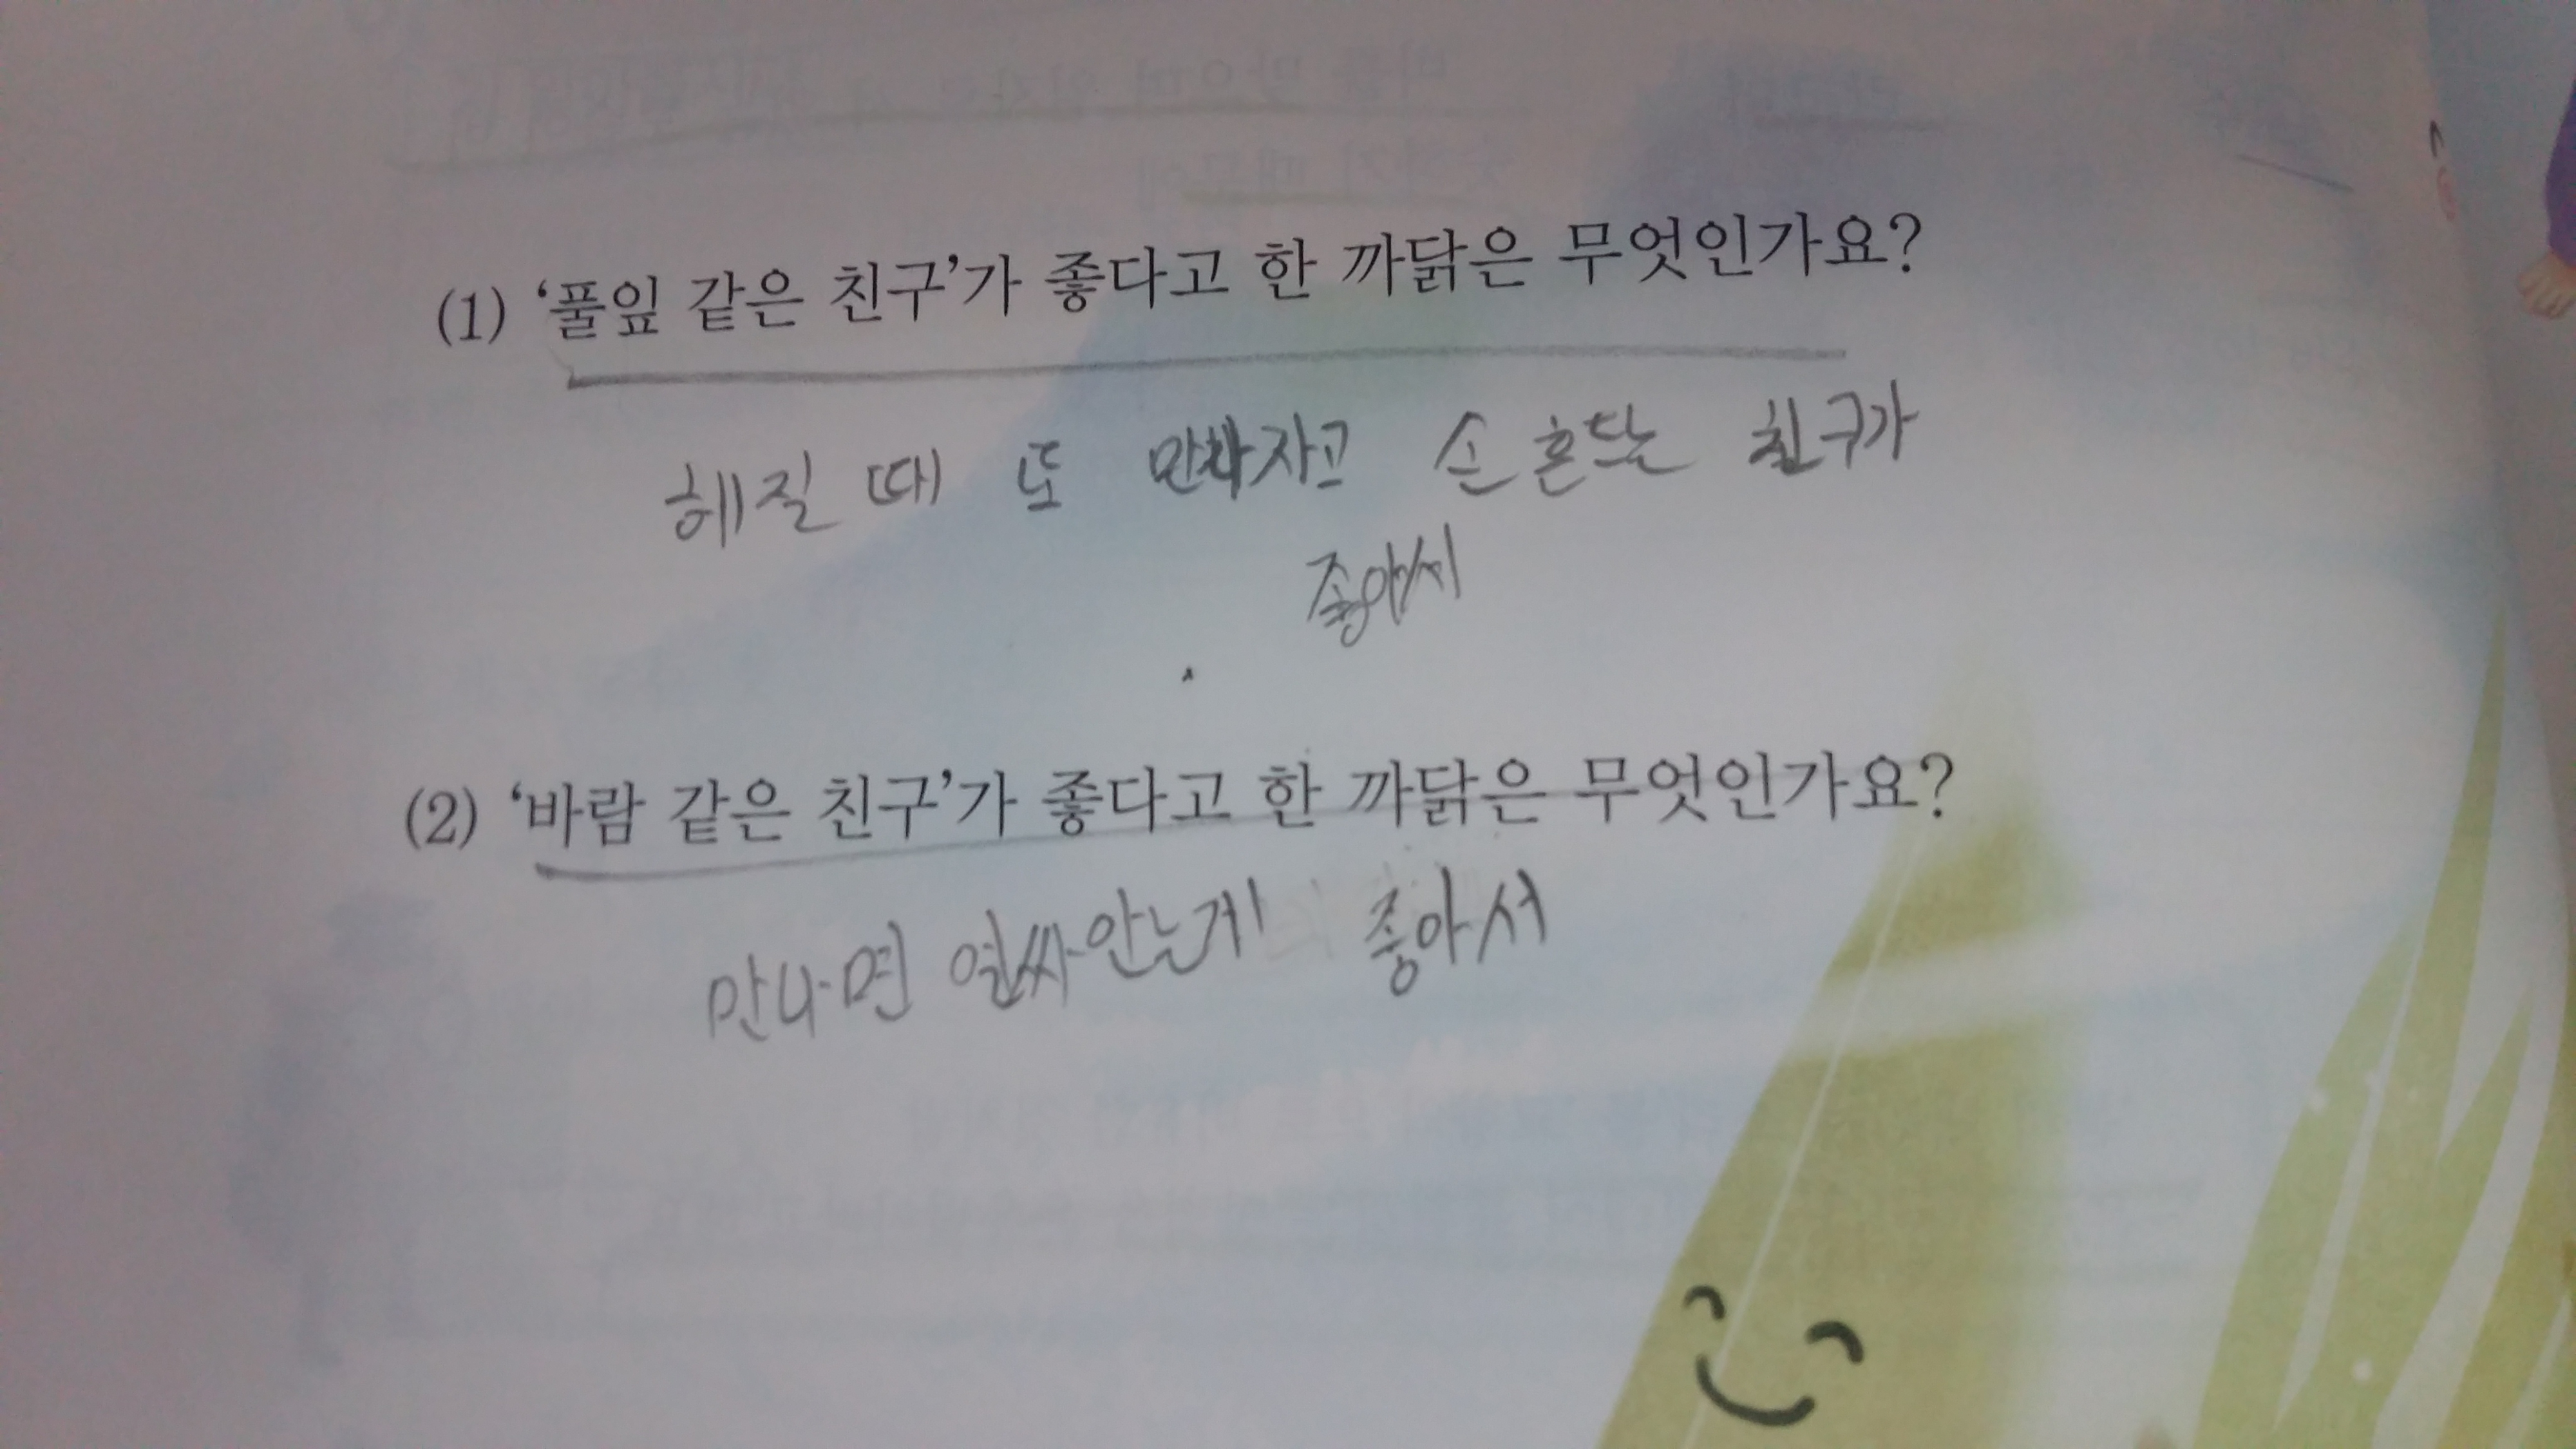 (1) ‘풀잎 같은 친구’가 좋다고 한 까닭은 무엇인가요?
헤질 때 또 만나자고 손 흔드는 친구가
좋아서
(2) ‘바람 같은 친구’가 좋다고 한 까닭은 무엇인가요?
만나면 얼싸안는게 좋아서